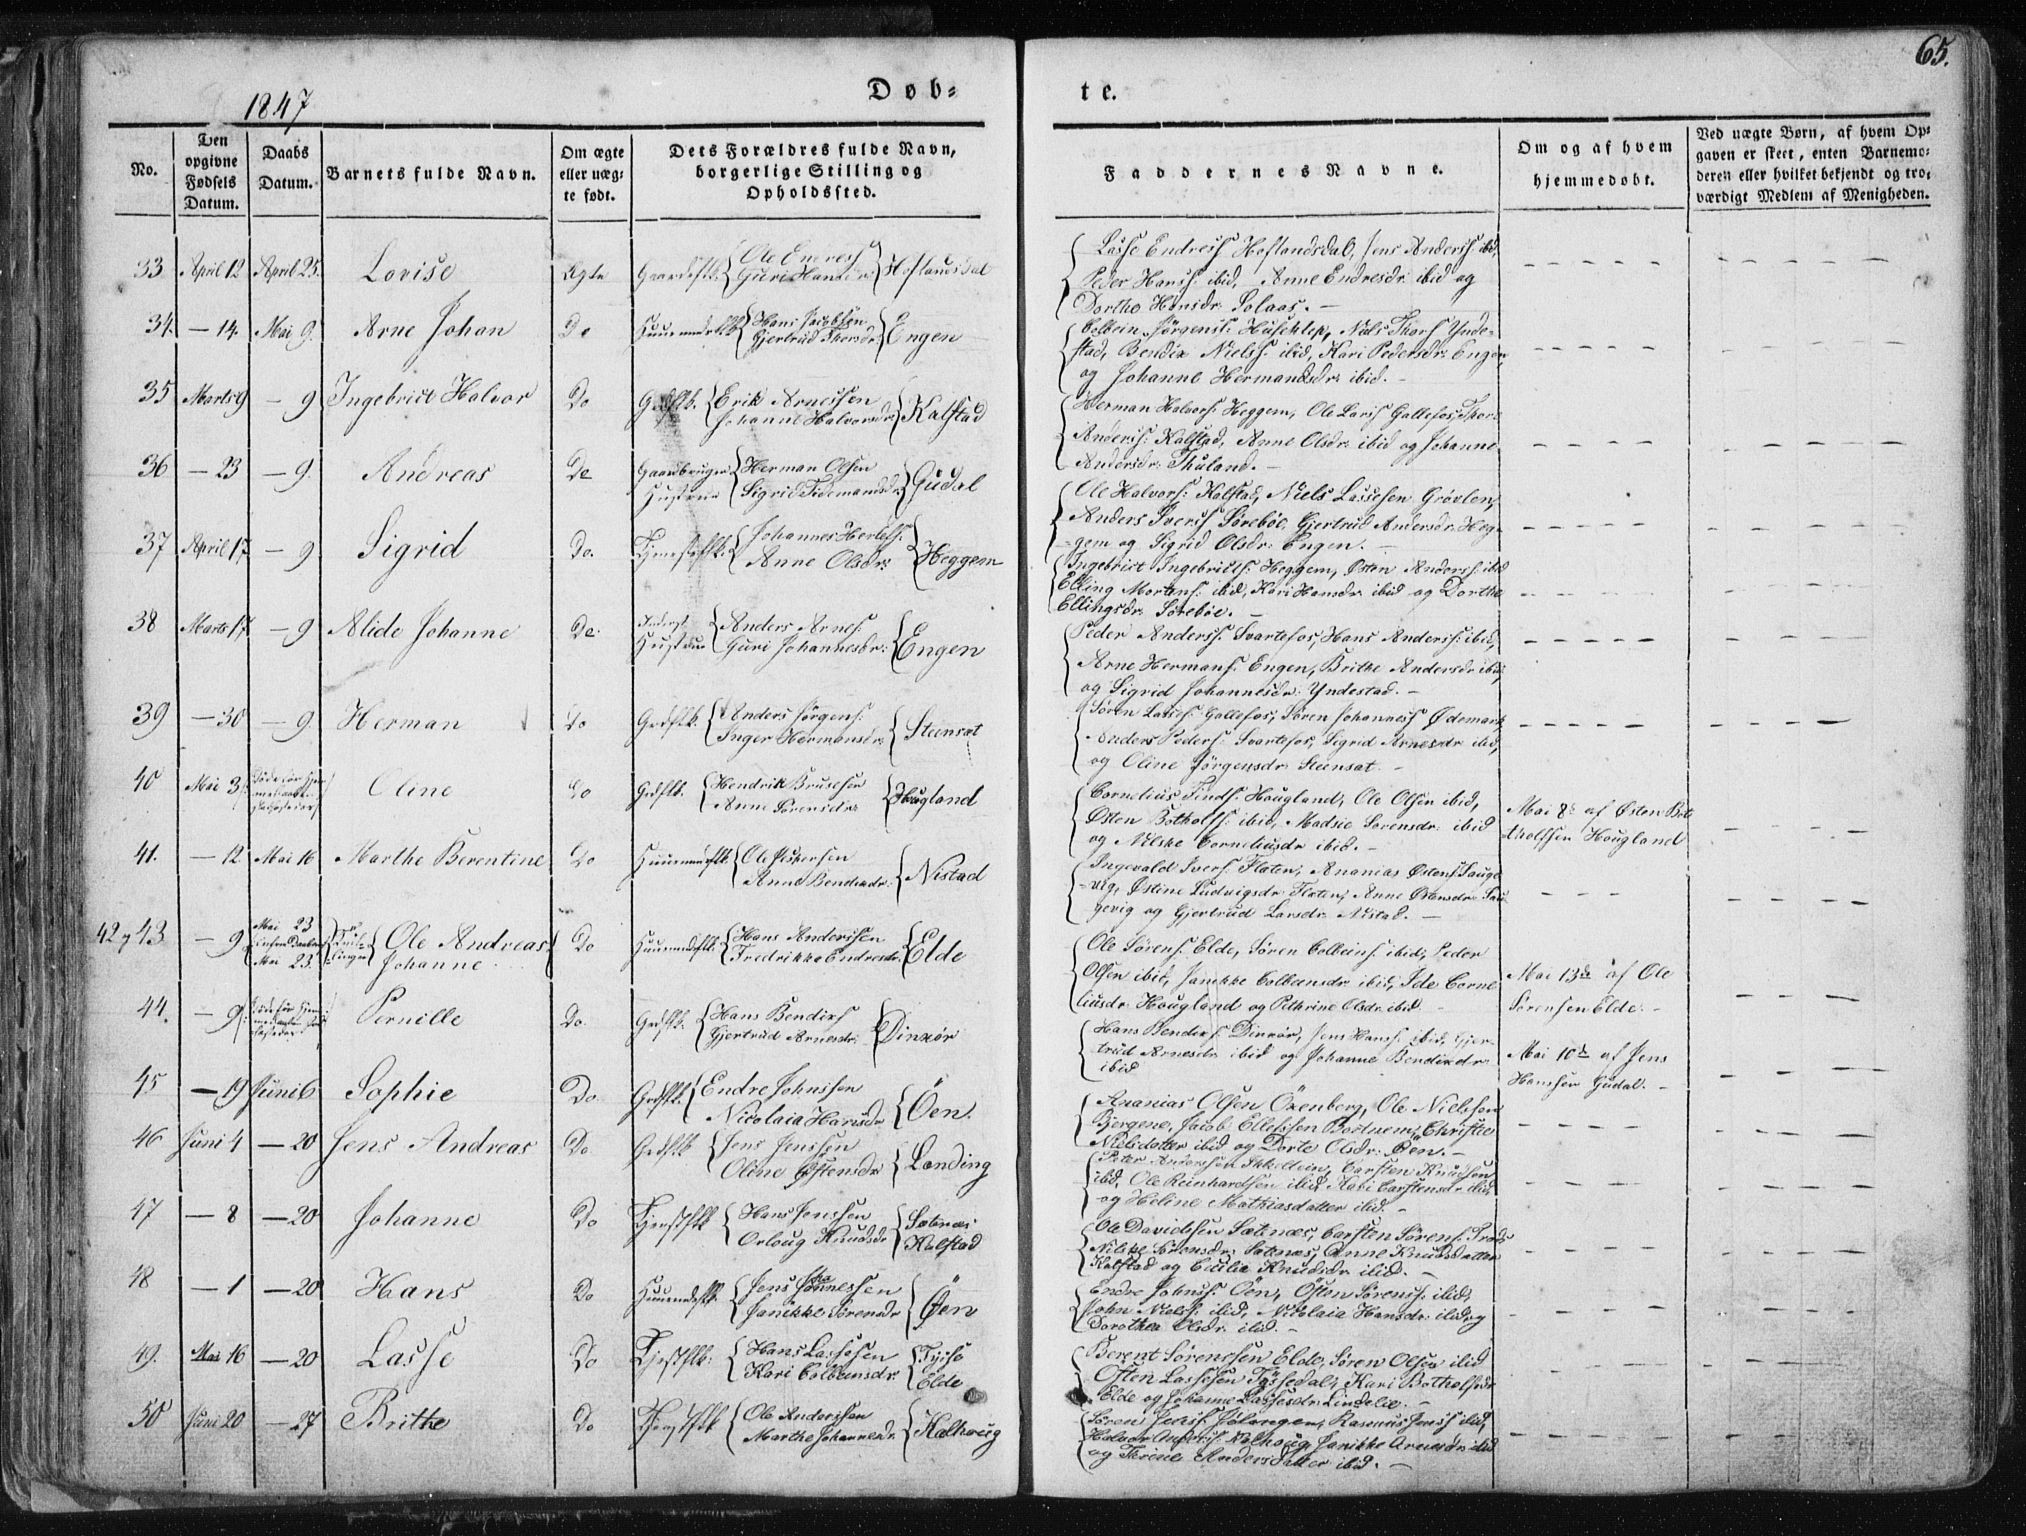 65.
1847
Døb-
te.
No.
Den opgivne Fødsels Datum.
Daabs Datum.
Barnets fulde Navn.
Om ægte eller uægte født.
Dets Forældres fulde Navn, borgerlige Stilling og Opholdssted.
Faddernes Navne.
Om og af hvem hjemmedøbt.
Ved uægte Børn, af hvem Op-
gaven er skeet, enten Barnemo-
deren eller hvilket bekjendt og tro-
værdigt Medlem af Menigheden.
33 April 12 April 25. Lovise Ægte Ole Endress Guri Hans Hoflandsdal
Lasse Endress Hoflandsdal, Jens Anderss ibid,
Peder Hanss: ibid, Anne Endresdr ibid og
Dorthe Hansdr Solaas. —
34. — 14. Mai 9. Arne Johan Do Hans Jacobsen Gjertrud Thorsdr: Engen
Colbein Jørgens: Huseklep, Niels Thors Ynde-
stad, Bendix Nielss: ibid, Kari Pedersdr: Engen
og Johanne Hermansdr: ibid. —
35 Marts 9 — 9 Ingebrict Halvor Do Gdflk. Erik Arnessen Johanne Halvorsdr: Kalstad
Herman Halvors: Heggem, Ole Laris Gallefos, Thore
Anderss: Kalstad, Anne Olsdr: ibid og Johanne
Andersdr: Thuland. —
36 — 23 — 9. Andreas Do Gaardbruger Hustrue Herman Olsen Sigrid Tidemandsdr Gudal
Ole Halvors: Kalstad, Niels Lassesen Grøvlen,
Anders Iverss Sørebøe, Gjertrud Andersdr: Heg-
gem og Sigrid Olsdr: Engen. —
37 April 17 — 9 Sigrid Do. Tjenestflk: Johannes Herlefs: Anne Olsdr: Heggem
Ingebrict Ingebricts: Heggem, Østen Anders: ibid
Elling Mortens: ibid, Kari Hansdr ibid og Dorthe
Ellingsdr Sørebøe. —
38 Marts 17 — 9 Alide Johanne Do: Hustrue Anders Arnes: Guri Johannesdr: Engen
Peder Anderss: Svartefos, Hans Anderss: ibid,
Arne Hermans: Engen, Brithe Andersdr ibid,
og Sigrid Johannesdr: Yndestad. —
39 — 30 — 9. Herman Do Grdflk. Anders Jørgens: Inger Hermansdr: Steinsæt
Søren Lasses: Gallefos, Søren Johanness Ødemark
Anders Peders: Svartefos, Sigrid Arnesdr ibid,
og Oline Jørgensdr: Steinsat. —
40 Mai 3 Oline Do Grdflk. Hendrik Brusesen Anne Sørensdr: Hougland
Cornelius Finds: Hougland, Ole Olsen ibid,
Østen Botholfs: ibid, Madsie Sørensdr: ibid
og Nilske Corneliusdr ibid. —
Mai 8de af Østen Bot-
tholfsen Hougland
41. — 12 Mai 16 Marthe Berentine Do Ole Anne Bendixdr: Nistad
Ingevald Ivers: Flaten, Ananias Østens Sauge-
vig, Østine Ludvigsdr: Flaten, Anne Østensdr: Sau-
gevig og Gjertrud Larsdr: Nistad. —
42 og 43 — 9 Mai 23 Mai 23. Tvillinger Ole Andreas Johanne Do Hans Andersen Fredrikke Endresdr. Elde
Ole Sørens: Elde, Søren Colbeins: ibid, Peder
Olsen ibid, Janikke Colbeinsdr ibid, Ide Corne
liusdr: Hougland og Pethrine Olsdr: ibid —
Mai 13de af Ole
Sørensen Elde. —
44. — 9 Pernille Do. Grdflk. Hans Bendixs Gjertrud Arnesdr: Dinxør
Hans Bendixs: Dinxør, Jens Hanss: ibid, Gjer-
trud Arnesdr ibid og Johanne Bendixdr:
ibid
Mai 10de af Jens
Hanssen Gudal. —
45 — 19 Juni 6 Sophie Do. Grdflk. Endre Johnssen Nicolaia Hansdr Öen.
Ananias Olsen Öxenberg, Ole Nielssen
Bergene, Jacob Ellefssen Bortnem, Christie
Nielsdatter ibid og Dorte Olsdr: Öen. —
46 Juni 4 — 20 Jens Andreas Do Grdflk Jens Jenssen Oline Østensdr Landing
Peter Andersen, Carsten Knudsen
ibid, Ole Reinhardtsen ibid, Kari Carstensdr ibid,
og Heline Mathiasdatter ibid. —
47 — 8 — 20 Johanne Do Tjenstflk Hans Jenssen Orloug Knudsdr Sætenæs Kalstad
Ole Davidssen Sætnæs, Carsten Sørens:
Nilske Sørensdr Sætnæs, Anne Knudsdatter
Kalstad og Cicilie Knudsdr ibid. —
48 — 1 — 20 Hans Do Jens Johannessen Janikke Sørensdr Öen
Endre Johnss: Öen, Östen Sørenss: ibid,
John Nielss: ibid, Nicolaia Hansdr: ibid, og
Dorothea Olsdr ibid. —
49. Mai 16 — 20 Lasse Do Tjestflk: Hans Lassesen Kari Colbeinsdr Elde
Berent Sørenssen Elde, Søren Olsen ibid
Østen Lassesen Tøssedal, Kari Botholfsdr
Elde og Johanne Lassesdr: Lindelie. —
50 Juni 20 — 27 Brithe Do Tjenstflk Ole Anderssen Marthe Johannesdr Kalhoug
Søren Jenss:, Rasmus Jenss ibid,
Halvor Anders: Kalhoug, Janikke Arnesdr: ibid
og Thrine Andersdatter ibid. —